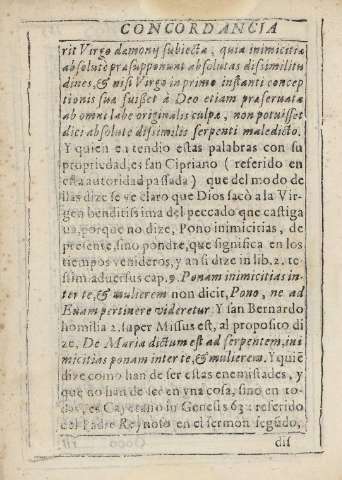 CONCORDANCIA
rit Virgo dæmony subiecta, quia inimicitiæ
absolute præsupponunt absolutas dissimilitu
dines, & nisi Virgo in primo instanti concep
tionis suæ fuisset à Deo etiam præseruata
ab omni labe originalis culpæ, non potuisset
dici absolute dissimilis serpenti maledicto.
Y quien en tendio estas palabras con su
propriedad, es san Cipriano (referido en
esta autoridad passada) que del modo de
llas dize se ve claro que Dios sacò a la Vir
gen benditissima del peccado que castiga
ua, porque no dize, Pono inimicitias, de
presente, sino pondre, que significa en los
tiempos venideros, y an si dize in lib. 2. te
stim aduersus cap. 9. Ponam inimicitias in-
ter te, & mulierem non dicit, Pono, ne ad
Euam pertinere videretur. Y san Bernardo
homilia 2. super Missus est, al proposito di
ze, De Maria dictum est ad serpentem, ini
micitias ponam inter te, & mulierem. Y quiē
dize como han de ser estas enemistades, y
que no han de ser en vna cosa, sino en to-
das, es Cayetano in Genesis 63: referido
del Padre Reynoso en el sermon segūdo,
dis